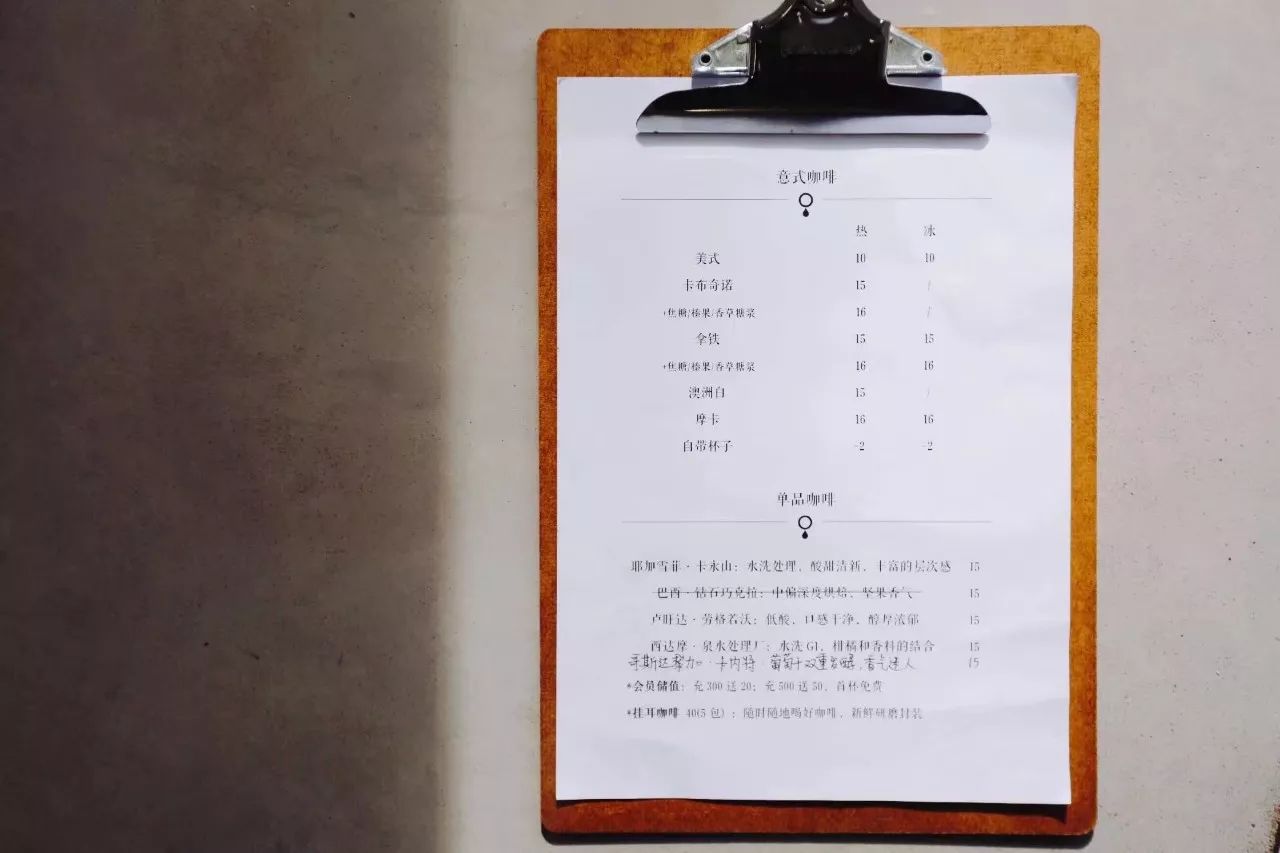 意式咖啡
热 冰
美式 10 10
卡布奇诺 15 /
+焦糖/榛果/香草糖浆 16 /
拿铁 15 15
+焦糖/榛果/香草糖浆 16 16
澳洲白 15 /
摩卡 16 16
自带杯子 -2 -2
单品咖啡
耶加雪菲·卡永山：水洗处理，酸甜清新，丰富的层次感 15
巴西·钻石巧克拉：中偏深度烘焙，坚果香气 15
卢旺达·劳格若沃：低酸，口感干净，醇厚浓郁 15
西达摩·泉水处理厂：水洗G1，柑橘和香料的结合 15
哥斯达黎加·卡内特·葡萄干双重发酵，香气迷人 15
*会员储值：充300送20；充500送50，首杯免费
*挂耳咖啡 40(5包)：随时随地喝好咖啡，新鲜研磨封装